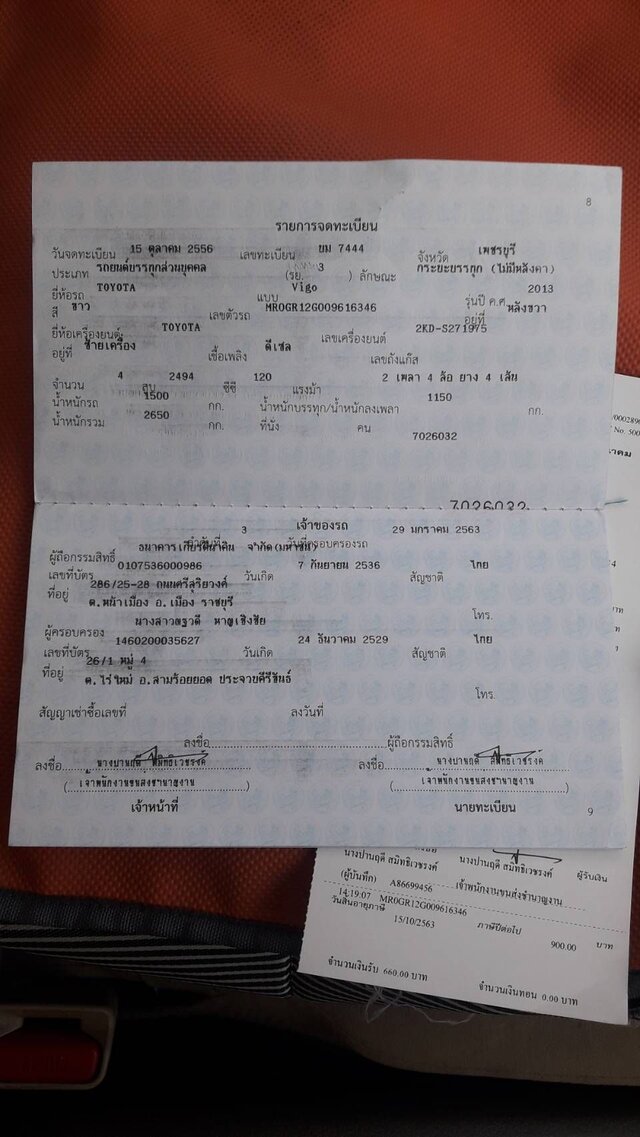 8
รายการจดทะเบียน
วันจดทะเบียน 15 ตุลาคม 2556 เลขทะเบียน ยม 7444 จังหวัด เพชรบุรี
ประเภท รถยนต์บรรทุกส่วนบุคคล (รย. 3 ) ลักษณะ กระบะบรรทุก (ไม่มีหลังคา)
ยี่ห้อรถ TOYOTA แบบ Vigo รุ่นปี ค.ศ. 2013
สี ขาว เลขตัวรถ MR0GR12G009616346 อยู่ที่ หลังขวา
ยี่ห้อเครื่องยนต์ TOYOTA เลขเครื่องยนต์ 2KD-S271975
อยู่ที่ ซ้ายเครื่อง เชื้อเพลิง ดีเซล เลขถังแก๊ส
จำนวน 4 สูบ 2494 ซีซี 120 แรงม้า 2 เพลา 4 ล้อ ยาง 4 เส้น
น้ำหนักรถ 1500 กก. น้ำหนักบรรทุก/น้ำหนักลงเพลา 1150 กก.
น้ำหนักรวม 2650 กก. ที่นั่ง คน
7026032
7026032
เจ้าของรถ
3 วันที่ครอบครองรถ 29 มกราคม 2563
ผู้ถือกรรมสิทธิ์ ธนาคารเกียรตินาคิน จำกัด(มหาชน)
เลขที่บัตร 0107536000986 วันเกิด 7 กันยายน 2536 สัญชาติ ไทย
ที่อยู่ 286/25-28 ถนนศรีสุริยวงศ์
ต.หน้าเมือง อ.เมือง ราชบุรี โทร.
ผู้ครอบครอง นางสาว หาญเชิงชัย
เลขที่บัตร 1460200035627 วันเกิด 24 ธันวาคม 2529 สัญชาติ ไทย
ที่อยู่ 26/1 หมู่ 4
ต.ไร่ใหม่ อ.สามร้อยยอด ประจวบคีรีขันธ์ โทร.
สัญญาเช่าซื้อเลขที่ ลงวันที่
ลงชื่อ ผู้ถือกรรมสิทธิ์
ลงชื่อ นางปานฤดี สมิทธิเวชรงค์ ลงชื่อ นางปานฤดี สมิทธิเวชรงค์
( เจ้าพนักงานขนส่งชำนาญงาน ) ( เจ้าพนักงานขนส่งชำนาญงาน )
เจ้าหน้าที่ นายทะเบียน 9
นางปานฤดี สมิทธิเวชรงค์ นางปานฤดี สมิทธิเวชรงค์ ผู้รับเงิน
(ผู้บันทึก) A86699456 เจ้าพนักงานขนส่งชำนาญงาน
14:19:07 MR0GR12G009616346
วันสิ้นอายุภาษี 15/10/2563 ภาษีปีต่อไป 900.00 บาท
จำนวนเงินรับ 660.00 บาท จำนวนเงินทอน 0.00 บาท